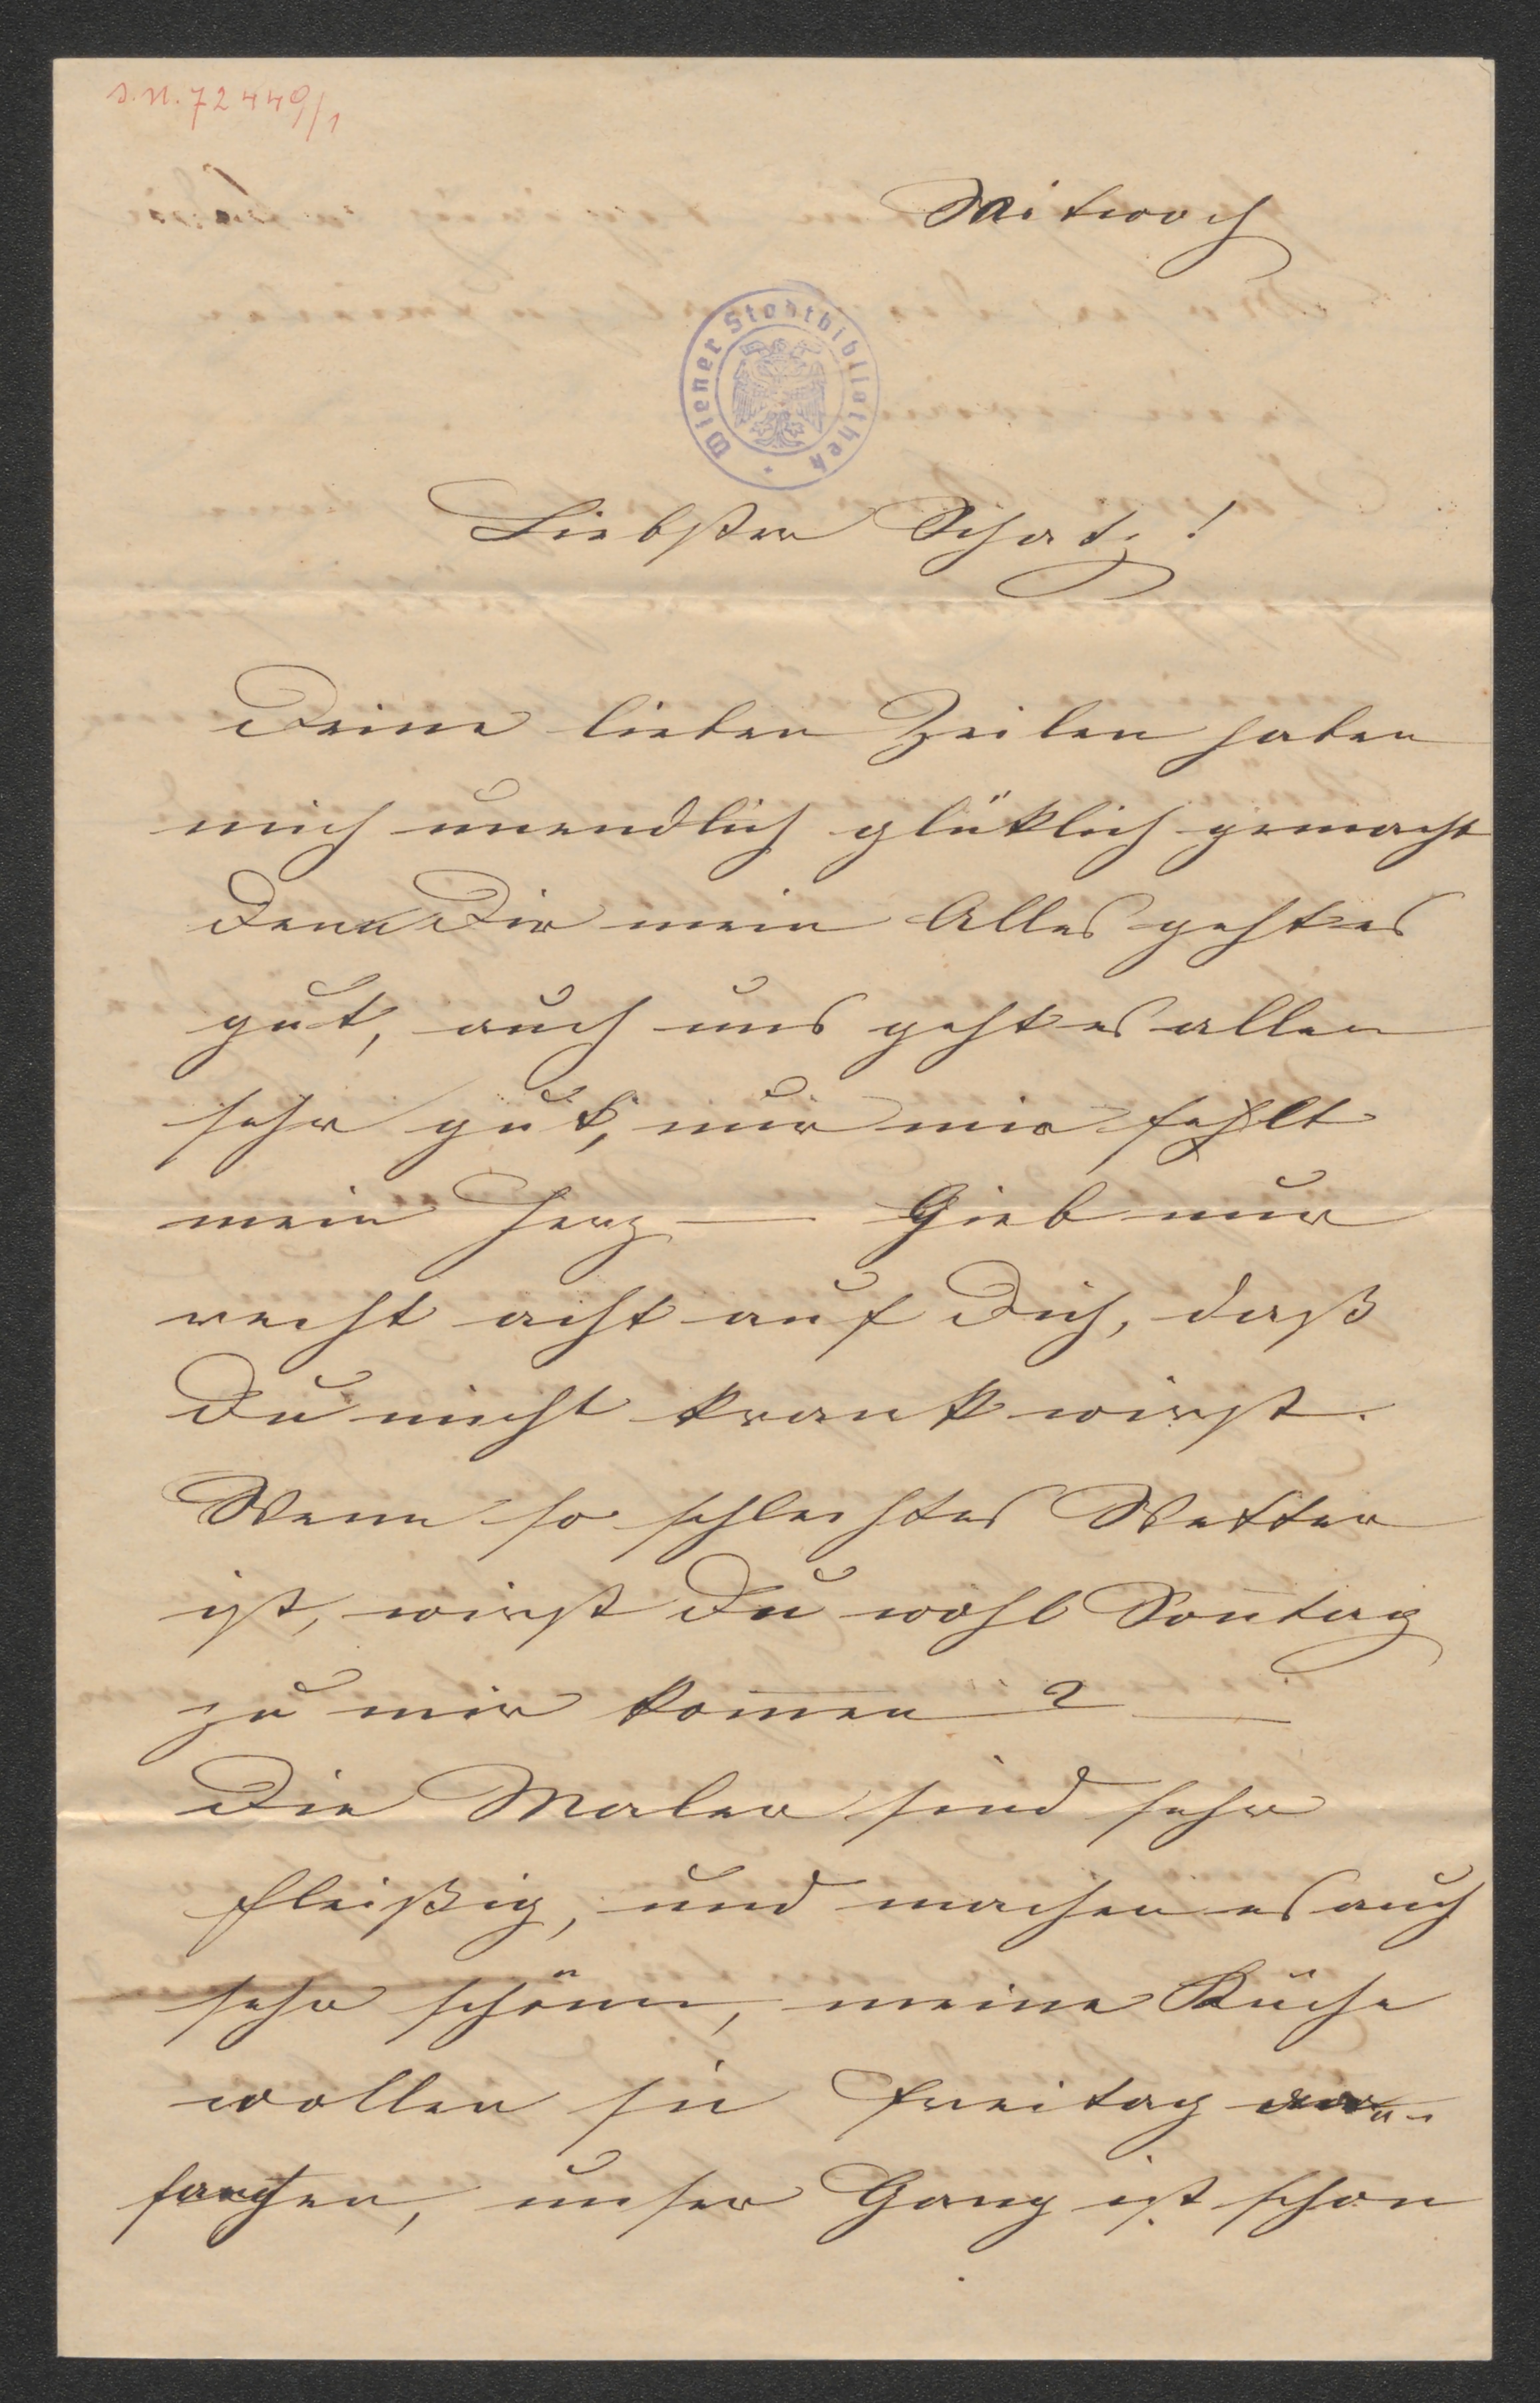 J.N. 72449/1
Mitwoch
Wiener Stadtbibliothek
Liebster Schatz!
Deine lieben Zeilen haben
mich unendlich glüklich gemacht
denn Dir mein Alles geht es
gut, auch uns geht es allen
sehr gut, nur mir fehlt
mein Herz — Gieb nur
recht acht auf Dich, daß
Du nicht krank wirst.
Wenn so schlechtes Wetter
ist, wirst Du wohl Son̄tag
zu mir kom̄en? —
Die Maler sind sehr
fleißig, und machen es auch
sehr schönn, meine Küche
wollen sie Freitag an-
fangen, unser Gang ist schon